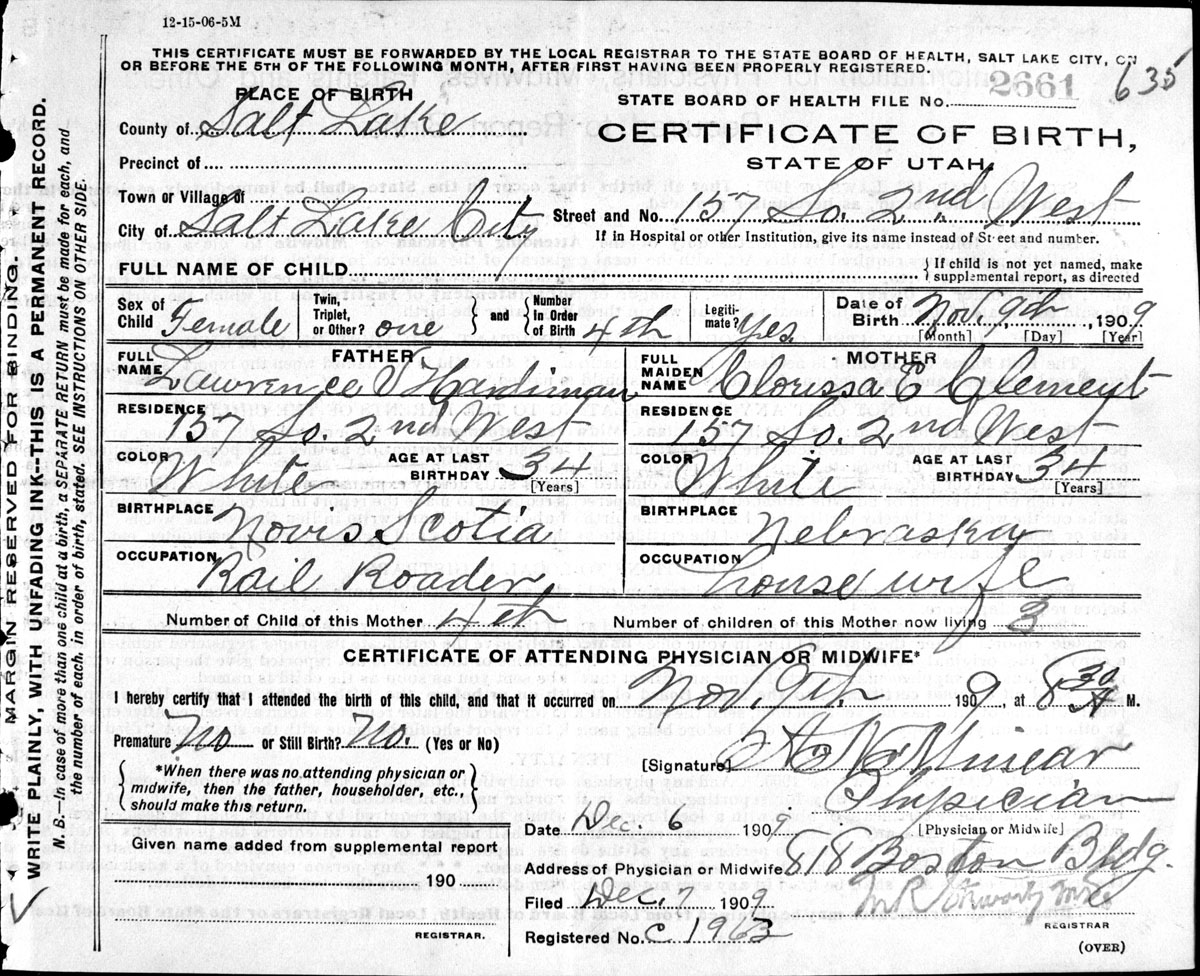 12-15-06-5M
THIS CERTIFICATE MUST BE FORWARDED BY THE LOCAL REGISTRAR TO THE STATE BOARD OF HEALTH, SALT LAKE CITY, ON
OR BEFORE THE 5TH OF THE FOLLOWING MONTH, AFTER FIRST HAVING BEEN PROPERLY REGISTERED.
635
PLACE OF BIRTH
STATE BOARD OF HEALTH FILE NO. 2661
County of Salt Lake
CERTIFICATE OF BIRTH,
STATE OF UTAH,
Precinct of
Town or Village of
City of Salt Lake City
Street and No. 157 So. 2nd West
If in Hospital or other Institution, give its name instead of Street and number.
FULL NAME OF CHILD
If child is not yet named, make
supplemental report, as directed
Sex of Child Female
Twin, Triplet, or Other? one
and
Number In Order of Birth 4th
Legitimate? Yes.
Date of Birth Nov. 9th, 1909
[Month] [Day] [Year]
FATHER
FULL NAME Lawrence Hardiman
RESIDENCE 157 So. 2nd West
COLOR White
AGE AT LAST BIRTHDAY 34
[Years]
BIRTHPLACE Novis Scotia
OCCUPATION Rail Roader
MOTHER
FULL MAIDEN NAME Clorissa E Clement
RESIDENCE 157 So. 2nd West
COLOR White
AGE AT LAST BIRTHDAY 34
[Years]
BIRTHPLACE Nebraska
OCCUPATION housewife
Number of Child of this Mother 4th
Number of children of this Mother now living 3
CERTIFICATE OF ATTENDING PHYSICIAN OR MIDWIFE*
I hereby certify that I attended the birth of this child, and that it occurred on Nov. 9th, 1909, at 8 30 A M.
Premature? No or Still Birth? No. (Yes or No)
*When there was no attending physician or
midwife, then the father, householder, etc.,
should make this return.
[Signature]
Physician
[Physician or Midwife]
Date Dec. 6 1909
Given name added from supplemental report
190
REGISTRAR.
Address of Physician or Midwife 818 Boston Bldg.
Filed Dec. 7 1909
REGISTRAR
Registered No. C. 1963
(OVER)
MARGIN RESERVED FOR BINDING.
WRITE PLAINLY, WITH UNFADING INK--THIS IS A PERMANENT RECORD.
N. B.--In case of more than one child at a birth, a SEPARATE RETURN must be made for each, and
the number of each, in order of birth, stated. SEE INSTRUCTIONS ON OTHER SIDE.